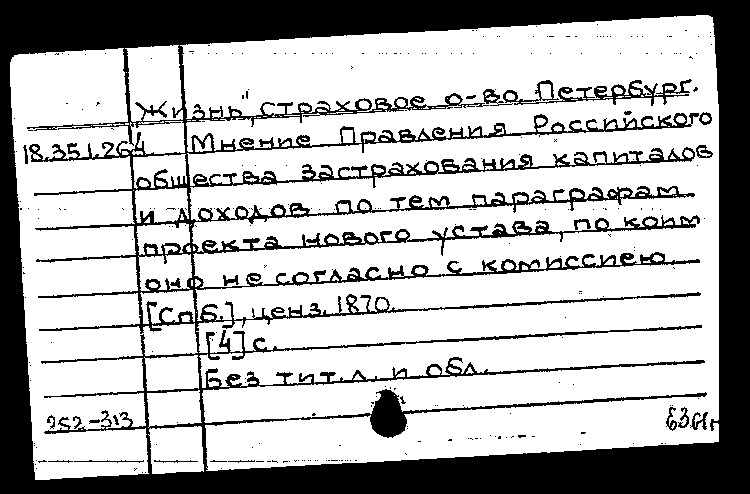 „Жизнь", страховое о-во. Петербург.
18.351.264 Мнение Правления Российского
общества застрахования капиталов
и доходов по тем параграфам
проекта нового устава, по коим
оно не согласно с комиссиею.
[Спб.], ценз. 1870.
[4] с.
Без тит.л. и обл.
252-313